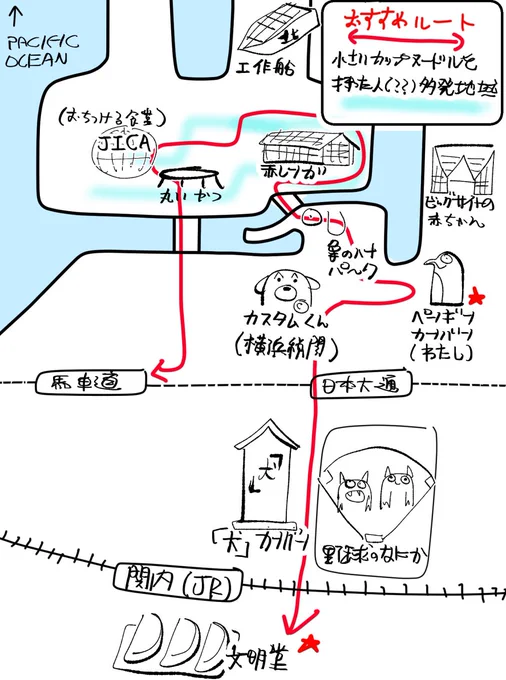 ↑
PACIFIC
OCEAN
北
工作船
おすすめルート
小さいカップヌードルを
持った人(??)多発地域
(おちつける食堂)
JICA
丸いやつ
赤レンガ
ビッグサイトの
赤ちゃん
象のハナ
パーク
カスタムくん
(横浜税関)
ペンギン
カンバン
(わたし)
馬車道
日本大通
犬
「犬」カンバン
野球のなにか
関内(JR)
文明堂